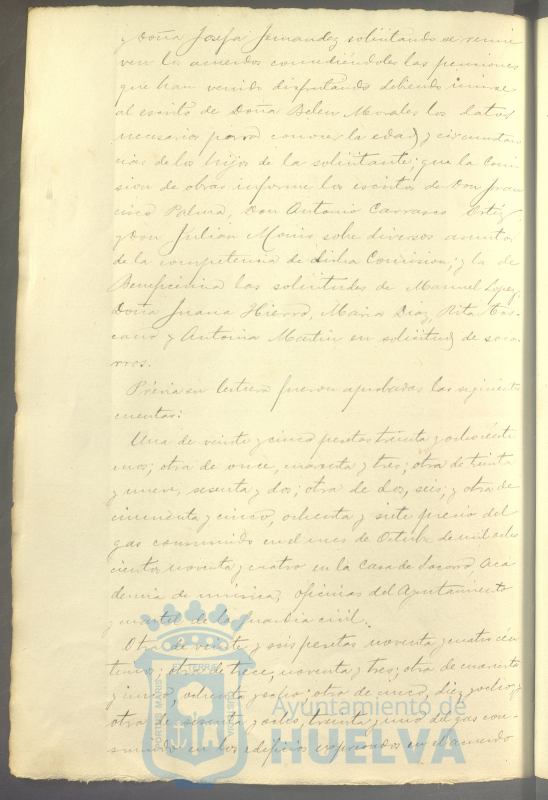 y Doña Josefa Fernandez solicitando se renue
ven los acuerdos concediéndoles las pensiones
que han venido disfrutando debiendo unirse
al escrito de Doña Belen Morales los datos
necesarios para conocer la edad y circunstan
cias de los hijos de la solicitante; que la Comi
sion de obras informe los escritos de Don Fran
cisco Palma, Don Antonio Carrasco Ortiz
y Don Julian Monis sobre diversos asuntos
de la competencia de dicha Comision; y la de
Beneficencia las solicitudes de Manuel Lopez,
Doña Juana Hierro, Maria Diaz, Rita Cas-
cano y Antonia Martin en solicitud de soco-
rros.
Prévia su lectura fueron aprobadas las siguientes
cuentas:
Una de veinte y cinco pesetas treinta y ocho cénti
mos; otra de once, cuarenta y tres; otra de treinta
y nueve, sesenta y dos; otra de dos, seis; y otra de
cincuenta y cinco, ochenta y siete precio del
gas consumido en el mes de Octubre de mil ocho
cientos noventa y cuatro en la Casa de Socorro, Aca
demia de música, oficinas del Ayuntamiento
y cuartel de la guardia civil.
Otra de veinte y seis pesetas noventa y cuatro cén
timos; otra de trece, noventa y tres; otra de cuarenta
y cinco, ochenta y ocho; otra de cinco, diez y ocho; y
otra de sesenta y ocho, treinta y uno del gas con-
sumido en los edificios expresados en el acuerdo
PORTUS MARIS
ET TERRE
Ayuntamiento de
HUELVA